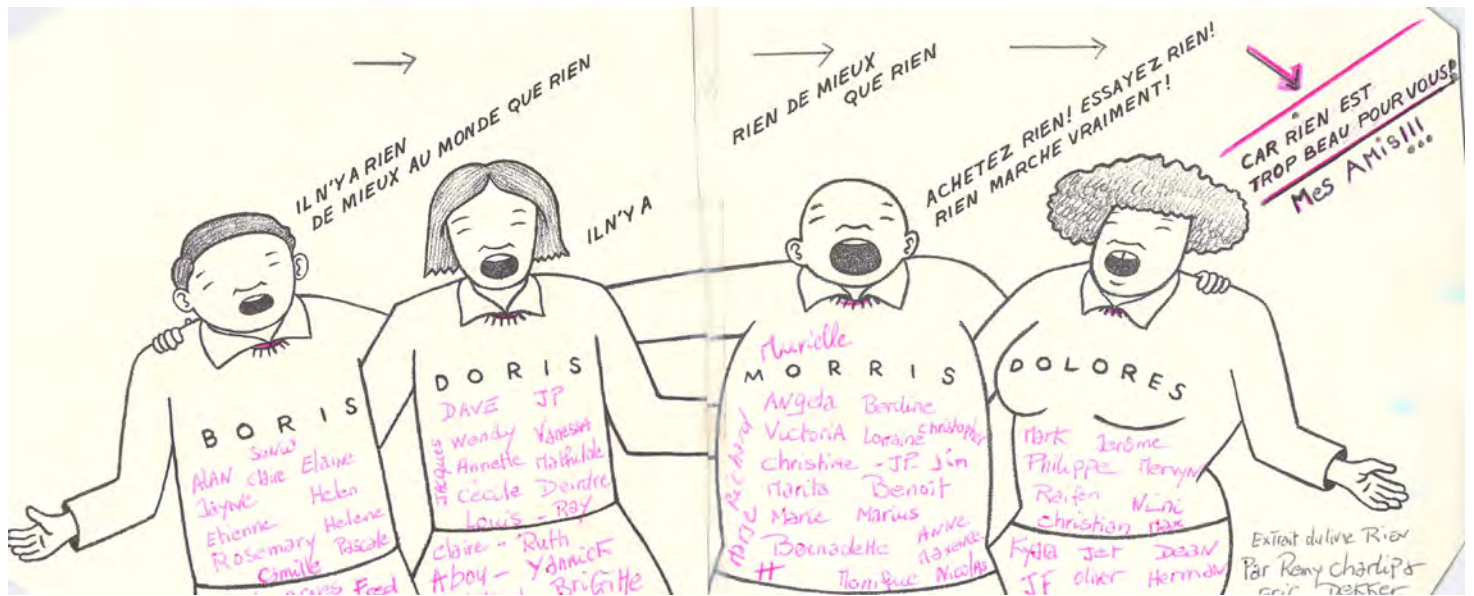 IL N'Y A RIEN
DE MIEUX AU MONDE QUE RIEN
IL N'Y A
RIEN DE MIEUX
QUE RIEN
ACHETEZ RIEN! ESSAYEZ RIEN!
RIEN MARCHE VRAIMENT!
CAR RIEN EST
TROP BEAU POUR VOUS!
Mes AMIS!!!
BORIS
ALAN Claire Elaine
Jayne Helen
Etienne Helene
Rosemary Pascale
Camille
Fred
DORIS
DAVE JP
JACQUES
Wendy Vanessa
Annette Mathilde
Cécile Deirdre
Louis - Ray
Claire - Ruth
Abou - Yannick
BriGitte
Murielle
MORRIS
Angela
VictoriA Lorraine christopher
Christine - JP Jim
Marita Benoit
Marie Marius
Bernadette ANNE
Monique Nicolas
DOLORES
Mark Jerôme
Philippe Mervyn
Nini
Christian Max
Jet Dean
JF oliver Herman
Extrait du livre Rien
Par Remy Charlip &
Eric Dekker